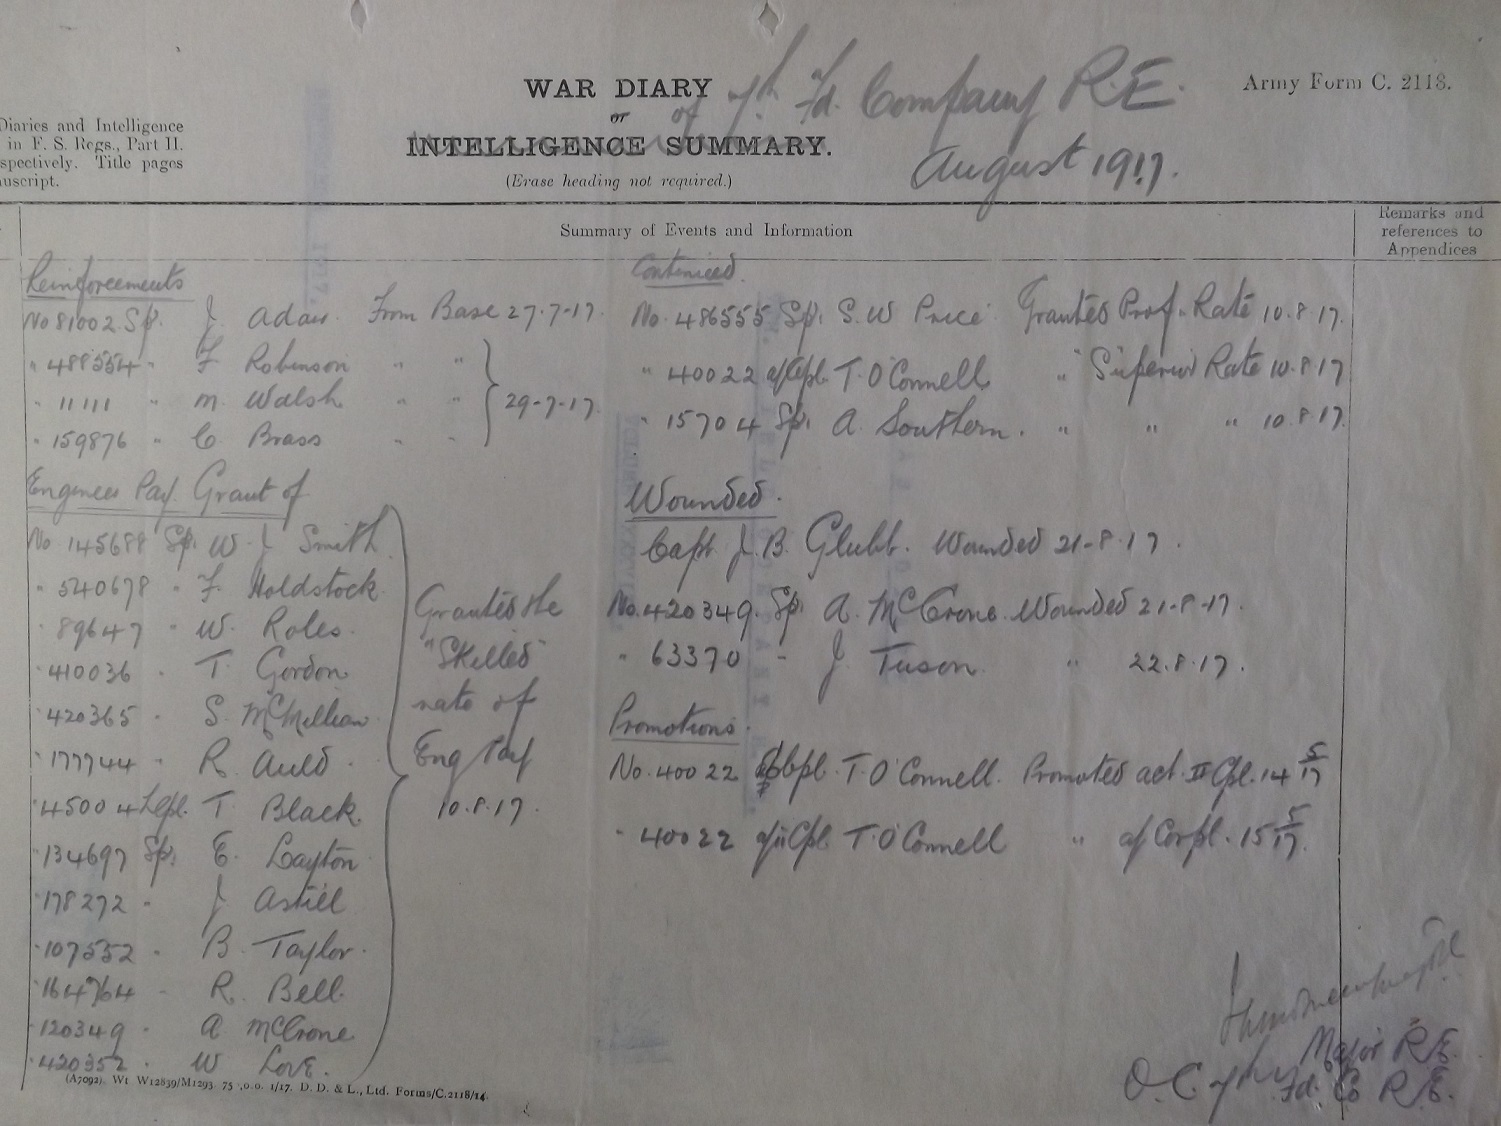 WAR DIARY
or
INTELLIGENCE SUMMARY.
(Erase heading not required.)
of 7th Fd. Company R.E.
August 1917.
Army Form C. 2118.
Diaries and Intelligence
in F. S. Regs., Part II.
spectively. Title pages
nuscript.
Summary of Events and Information
Remarks and
references to
Appendices
Reinforcements
No 81002 Sp. J Adam From Base 27-7-17.
" 488554 " F Robinson " "
" 11111 " M Walsh " " 29-7-17.
" 159876 " C Brass " "
Engineer Pay Grant of
No 145688 Sp. W J Smith
" 540678 " F. Holdstock
" 89647 " W. Roles.
" 410036 " T. Gordon
" 420365 " S. McMillian
" 177744 " R. Auld
" 45004 Lcpl. T Black.
" 134697 Sp. E. Layton
" 178272 " J Astill
" 107552 " B. Taylor.
" 164764 " R. Bell
" 120349 " A McCrone
" 420352 " W Love.
Granted the
"Skilled"
rate of
Eng Pay
10.8.17.
Continued.
No. 486555 Sp. S.W Price Granted Prof. Rate 10.8.17.
" 40022 a/Cpl. T. O'Connell " Superior Rate 10.8.17
" 15704 Sp. A. Southern. " " " 10.8.17.
Wounded.
Capt J.B. Glubb. Wounded 21-8-17.
No. 420349. Sp A. McCrone. Wounded 21-8-17.
" 63370 " J. Tuson. " 22.8.17.
Promotions.
No. 40022 T. O'Connell. Promoted act. II Cpl. 14 5/17
" 40022 a/iiCpl T. O'Connell " a/Corpl. 15 5/17.
Major R.E.
O.C. 7th Fd. Co R.E.
(A7092). Wt W12839/M1293 75 ,0.0. 1/17. D. D. & L., Ltd. Forms/C.2118/14.